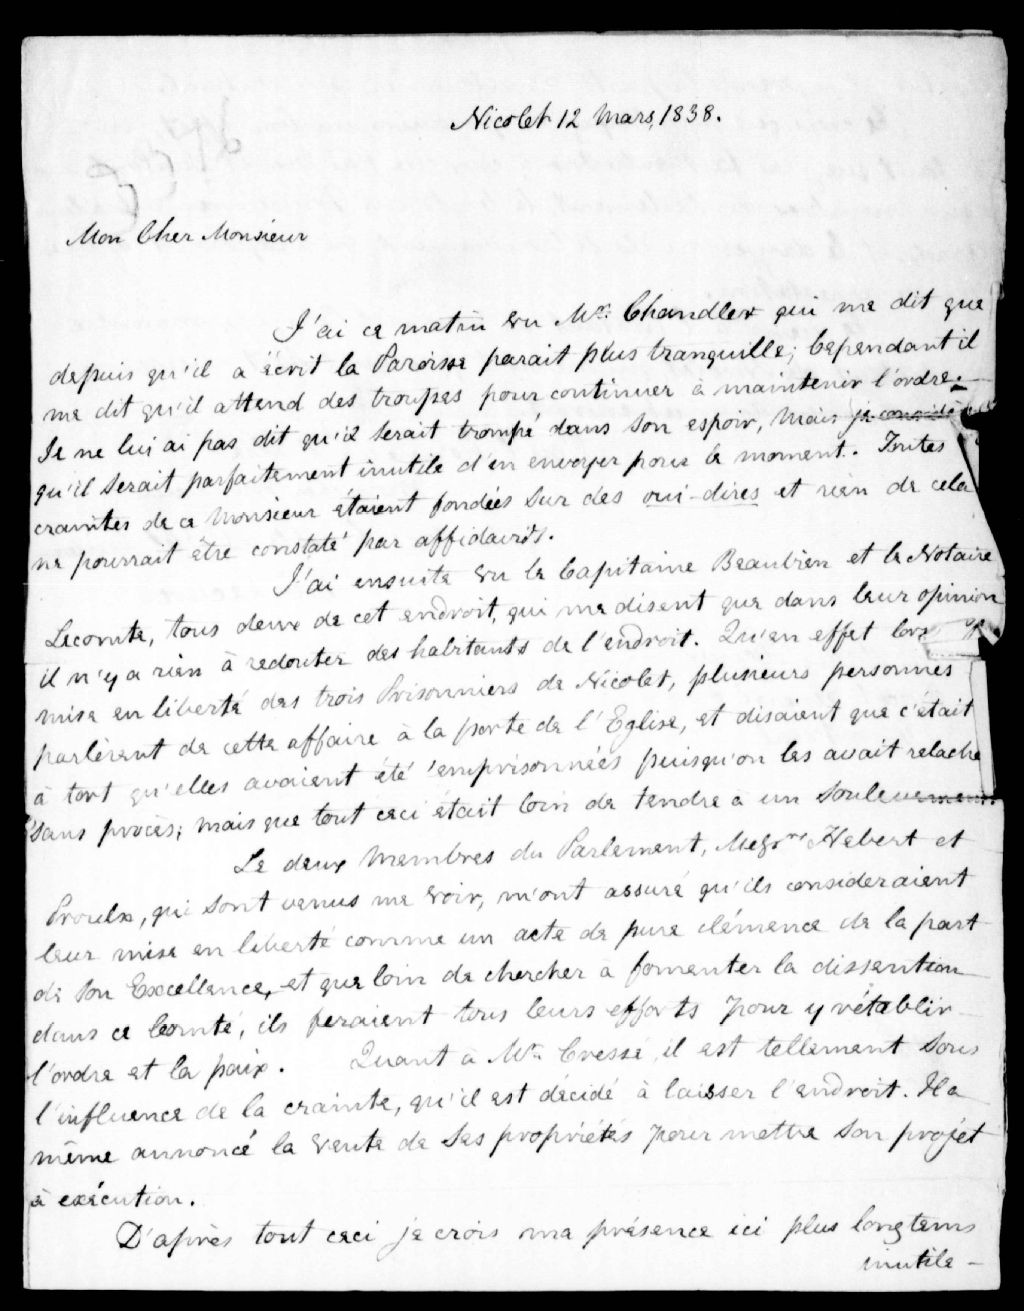 Nicolet 12 Mars, 1838.
Mon Cher Monsieur
J'ai ce matin vu Mr. Chandler qui me dit que
depuis qu'il a écrit la Paroisse parait plus tranquille; Cependant il
me dit qu'il attend des troupes pour continuer à maintenir l'ordre.
Je ne lui ai pas dit qu'il serait trompé dans son espoir, mais je considè
qu'il serait parfaitement inutile d'en envoyer pour le moment. Toutes
craintes de ce Monsieur étaient fondées sur des oui-dires et rien de cela
ne pourrait être constaté par affidavits.
J'ai ensuite vu le Capitaine Beaubien et le Notaire
Lecomte, tous deux de cet endroit, qui me disent que dans leur opinion
il n'y a rien à redouter des habitants de l'endroit. Qu'en effet lors
mise en liberté des trois Prisonniers de Nicolet, plusieurs personnes
parlèrent de cette affaire à la porte de l'Eglise, et disaient que c'était
à tort qu'elles avaient été emprisonnées puisqu'on les avait relaché
sans procès; mais que tout ceci était loin de tendre à un soulevement
Le deux Membres du Parlement, Messrs Hebert et
Proulx, qui sont venus me voir, m'ont assuré qu'ils consideraient
leur mise en liberté comme un acte de pure clémence de la part
de son Excellence, et que loin de chercher à fomenter la dissention
dans ce Comté, ils feraient tous leurs efforts pour y rétablir
l'ordre et la paix. Quant à Mr. Cressé, il est tellement sous
l'influence de la crainte, qu'il est décidé à laisser l'endroit. Il a
même annoncé la vente de ses propriétés pour mettre son projet
à exécution.
D'après tout ceci je crois ma présence ici plus longtems
inutile -